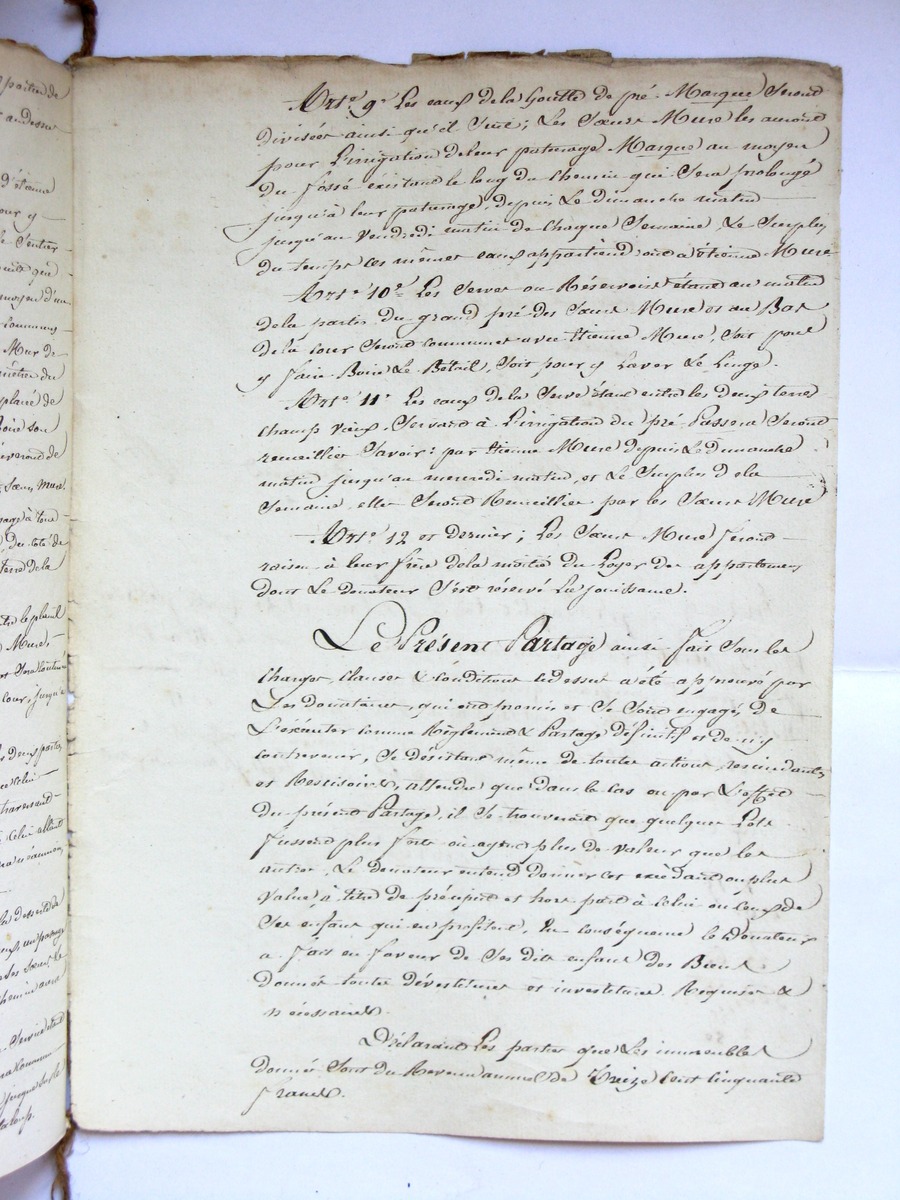 partie de
au dessus
d'étienne
pour y
le Sentier
moyen d'un
communs
Mur de
Sœurs Mure.
du coté de
terre de la
Mure,
cour, jusqu'à
traversant
celui allant
chemin
Art.e 9.e Les eaux de la goutte de pré Marque Seront
divisées ainsi qu'il Suit; Les Sœurs Mure les auront
pour L'irrigation de leur paturage Marque au moyen
du fossé existant le long du chemin qui Sera prolongé
jusqu'à leur paturage, depuis Le dimanche matin
jusqu'au vendredi matin de chaque Semaine, Le Surplus
du temps ces mêmes eaux appartiendront à étienne Mure.
Art.e 10.e Les Serves ou Réservoirs étant au matin
de la partie du grand pré des Sœurs Mure et au Bas
de la cour Seront communes avec étienne Mure, Soit pour
y faire Boire Le Bétail, Soit pour y Laver Le Linge.
Art.e 11.e Les eaux de la Serve étant entre les deux terres
champ vieux, Servant à L'irrigation du pré Passera Seront
recueillies Savoir: par étienne Mure depuis Le dimanche
matin jusqu'au mercredi matin, et Le Surplus de la
Semaine, elles Seront Recueillies par les Sœurs Mure
Art.e 12 et dernier; Les Sœurs Mure feront
raison à leur frère de la moitié du Loyer des appartemens
dont Le donateur S'est réservé La jouissance.
Le Présent Partage ainsi fait Sous les
charges, clauses & conditions ci dessus a été approuvé par
Les donataires, qui ont promis et Se Sont engagés de
L'éxécuter comme Règlement & Partage définitif et de n'y
contrevenir, Se désistant même de toutes actions rescindantes
et Rescisoires, attendu que dans le cas ou par L'effet
du présent Partage, il Se trouverait que quelques Lots
fussent plus forts ou ayent plus de valeur que les
autres, Le donateur entend donner cet excédant ou plus
value à titre de préciput et hors part à celui ou ceux de
Ses enfans qui en profitent, En conséquence le Donateur
a fait en faveur de Ses dits enfans des Biens
donnés toutes dévestitures et investitures Requises &
nécessaires.
Déclarant Les parties que Les immeubles
donnés Sont du Revenu annuel de Treize cent cinquante
francs.